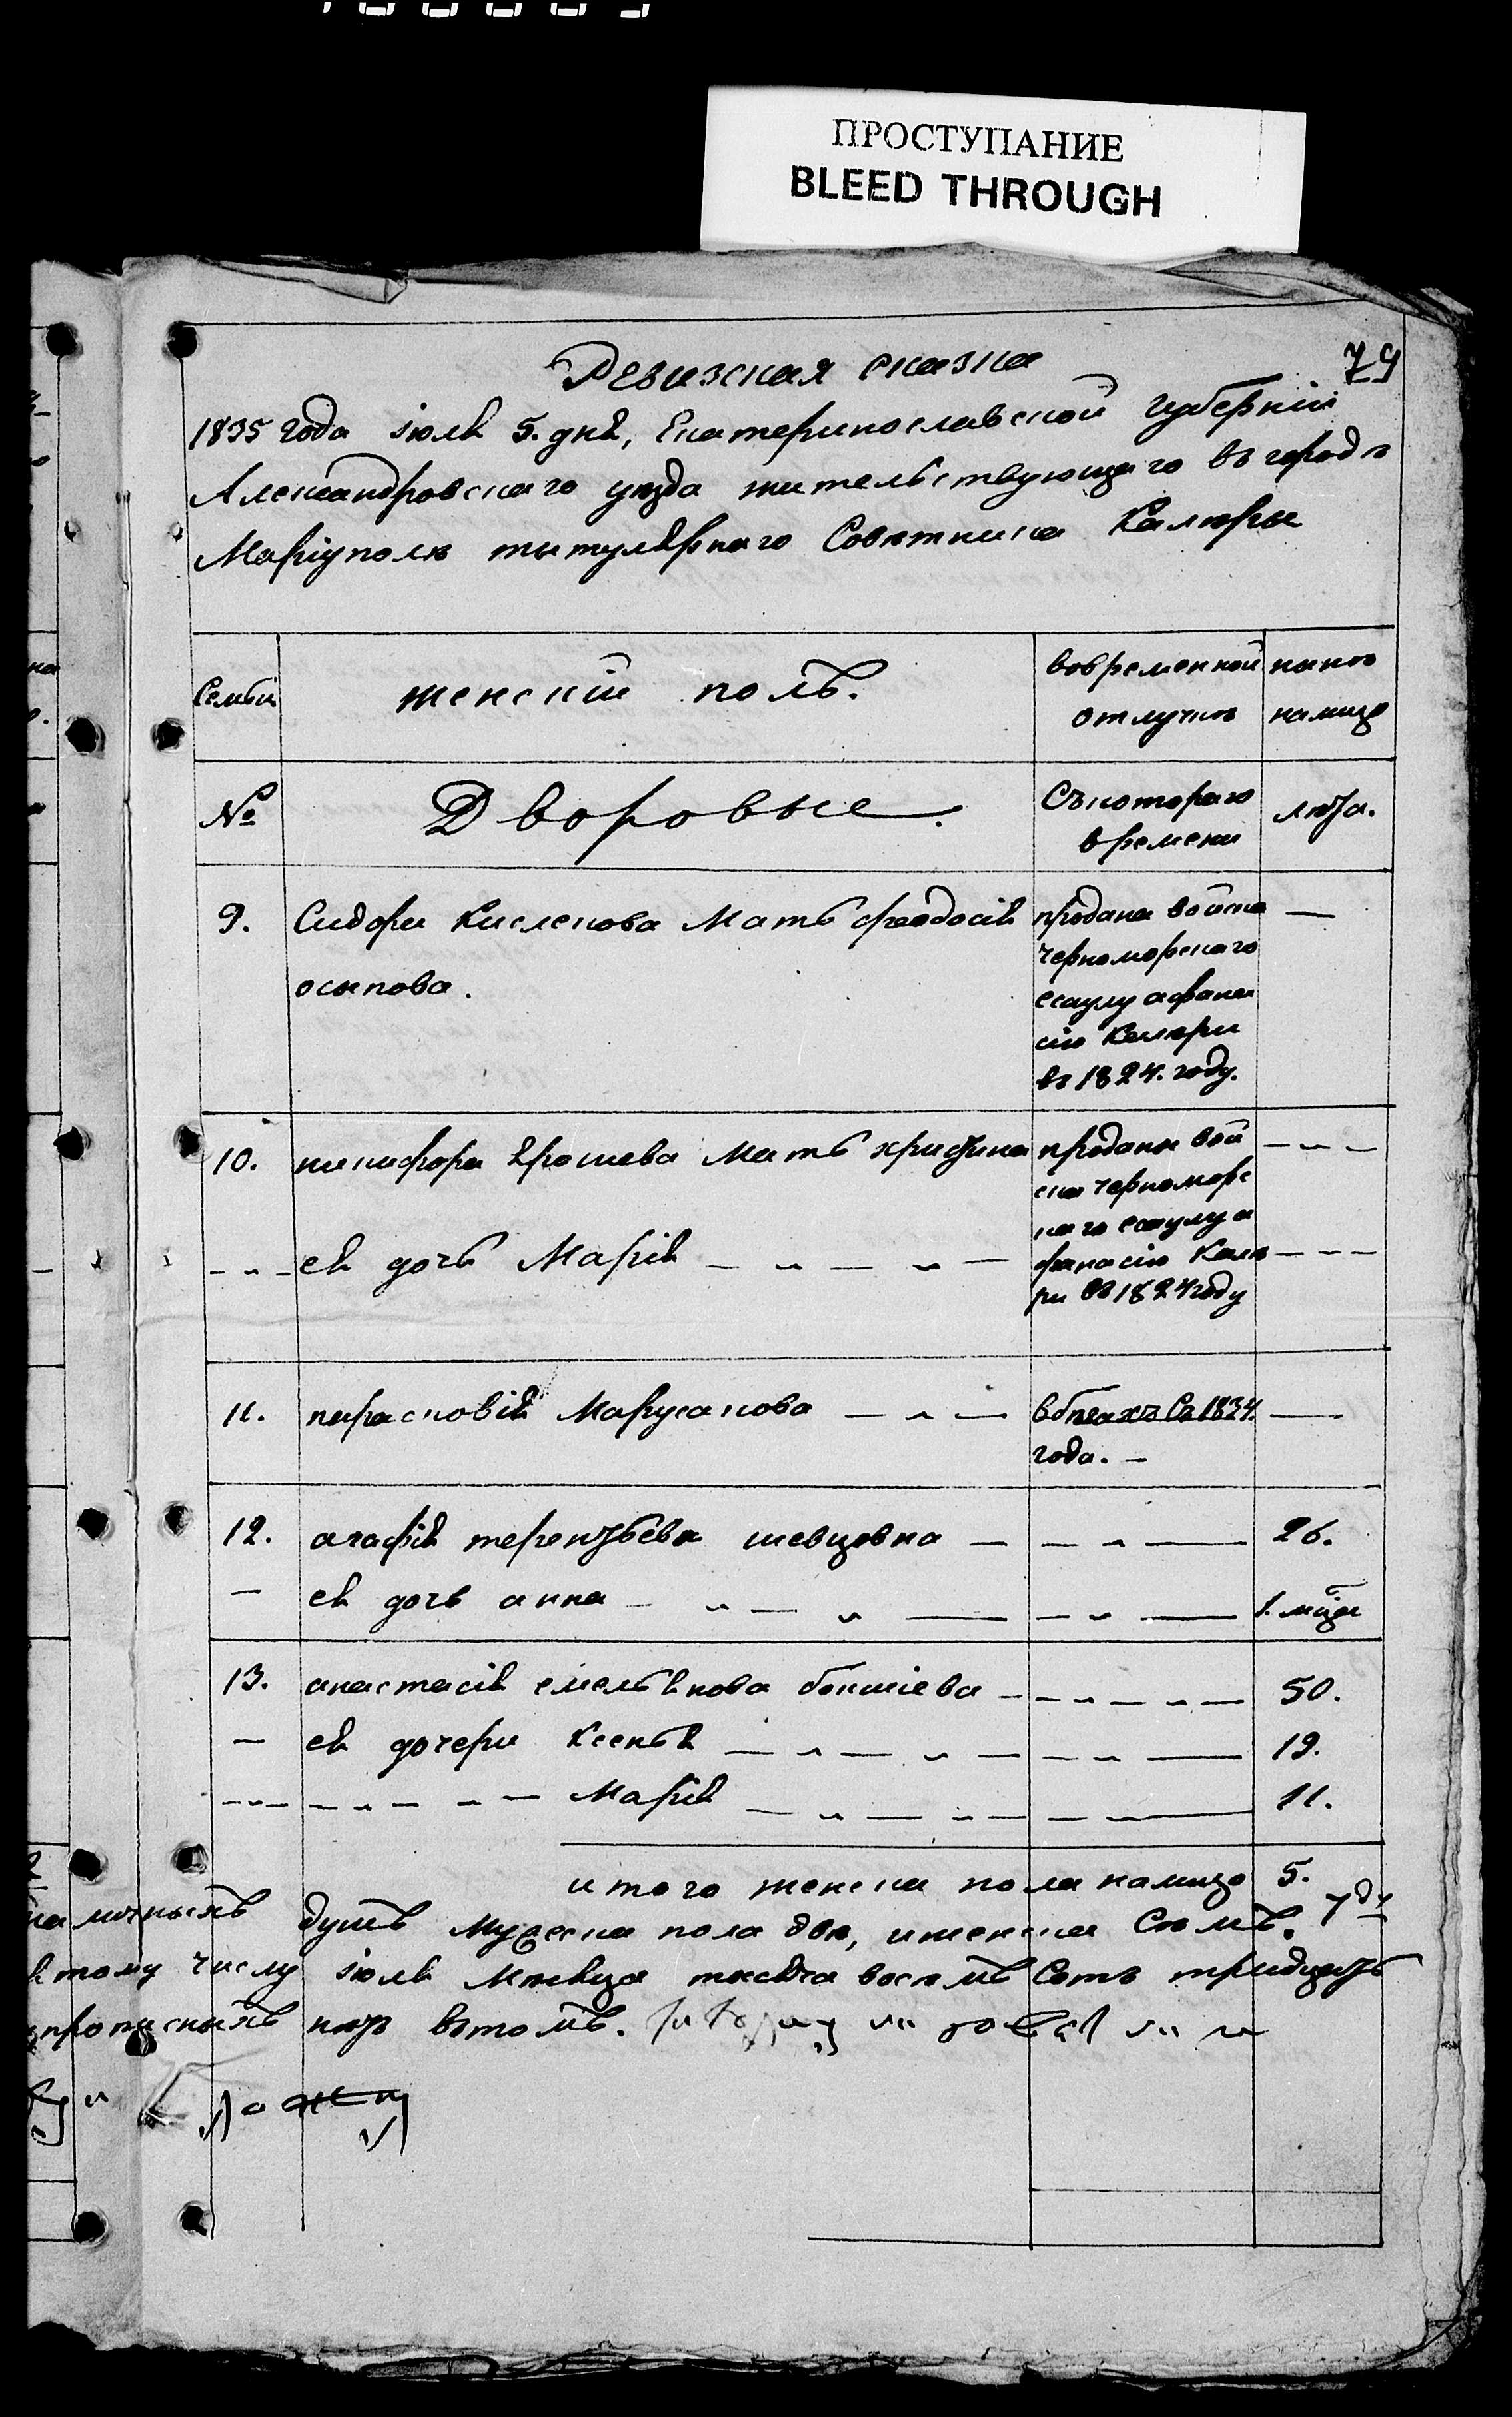 ПРОСТУПАНИЕ
BLEED THROUGH
79
Ревизская сказка
1835 года іюля 5. дня, Екатеринославской губерніи
Александровскаго уезда жительствующаго въ городѣ
Маріуполѣ титулярнаго Советника Калери
Семьи
женскій полъ.
вовременной отлучкѣ
ныне налицо
№
Дворовые.
Съкотораго времени
лѣта.
9. Сидора Кисленова Мать феодосія продана войска —
осипова. черноморскаго
есаулу афана
сію Калери
въ 1824. году.
10. никифора Мать христина проданы вой
ска черноморс
каго есаулу а
ея дочь Марія фанасію Кале
ри въ 1824 году
11. парасковія вбегахъ Съ 1834. —
года. —
12. агафія терентьева шевцовна 26.
— ея дочь анна 1. мца
13. анастасія емельянова 50.
— ея дочери Ксенья 19.
Марія 11.
итого женска пола налицо 5.
наличныхъ душъ Мужеска пола два, иженска Семъ.
ктому числу іюля Месяца тысяча восемь Сотъ тридцать
прописныхъ